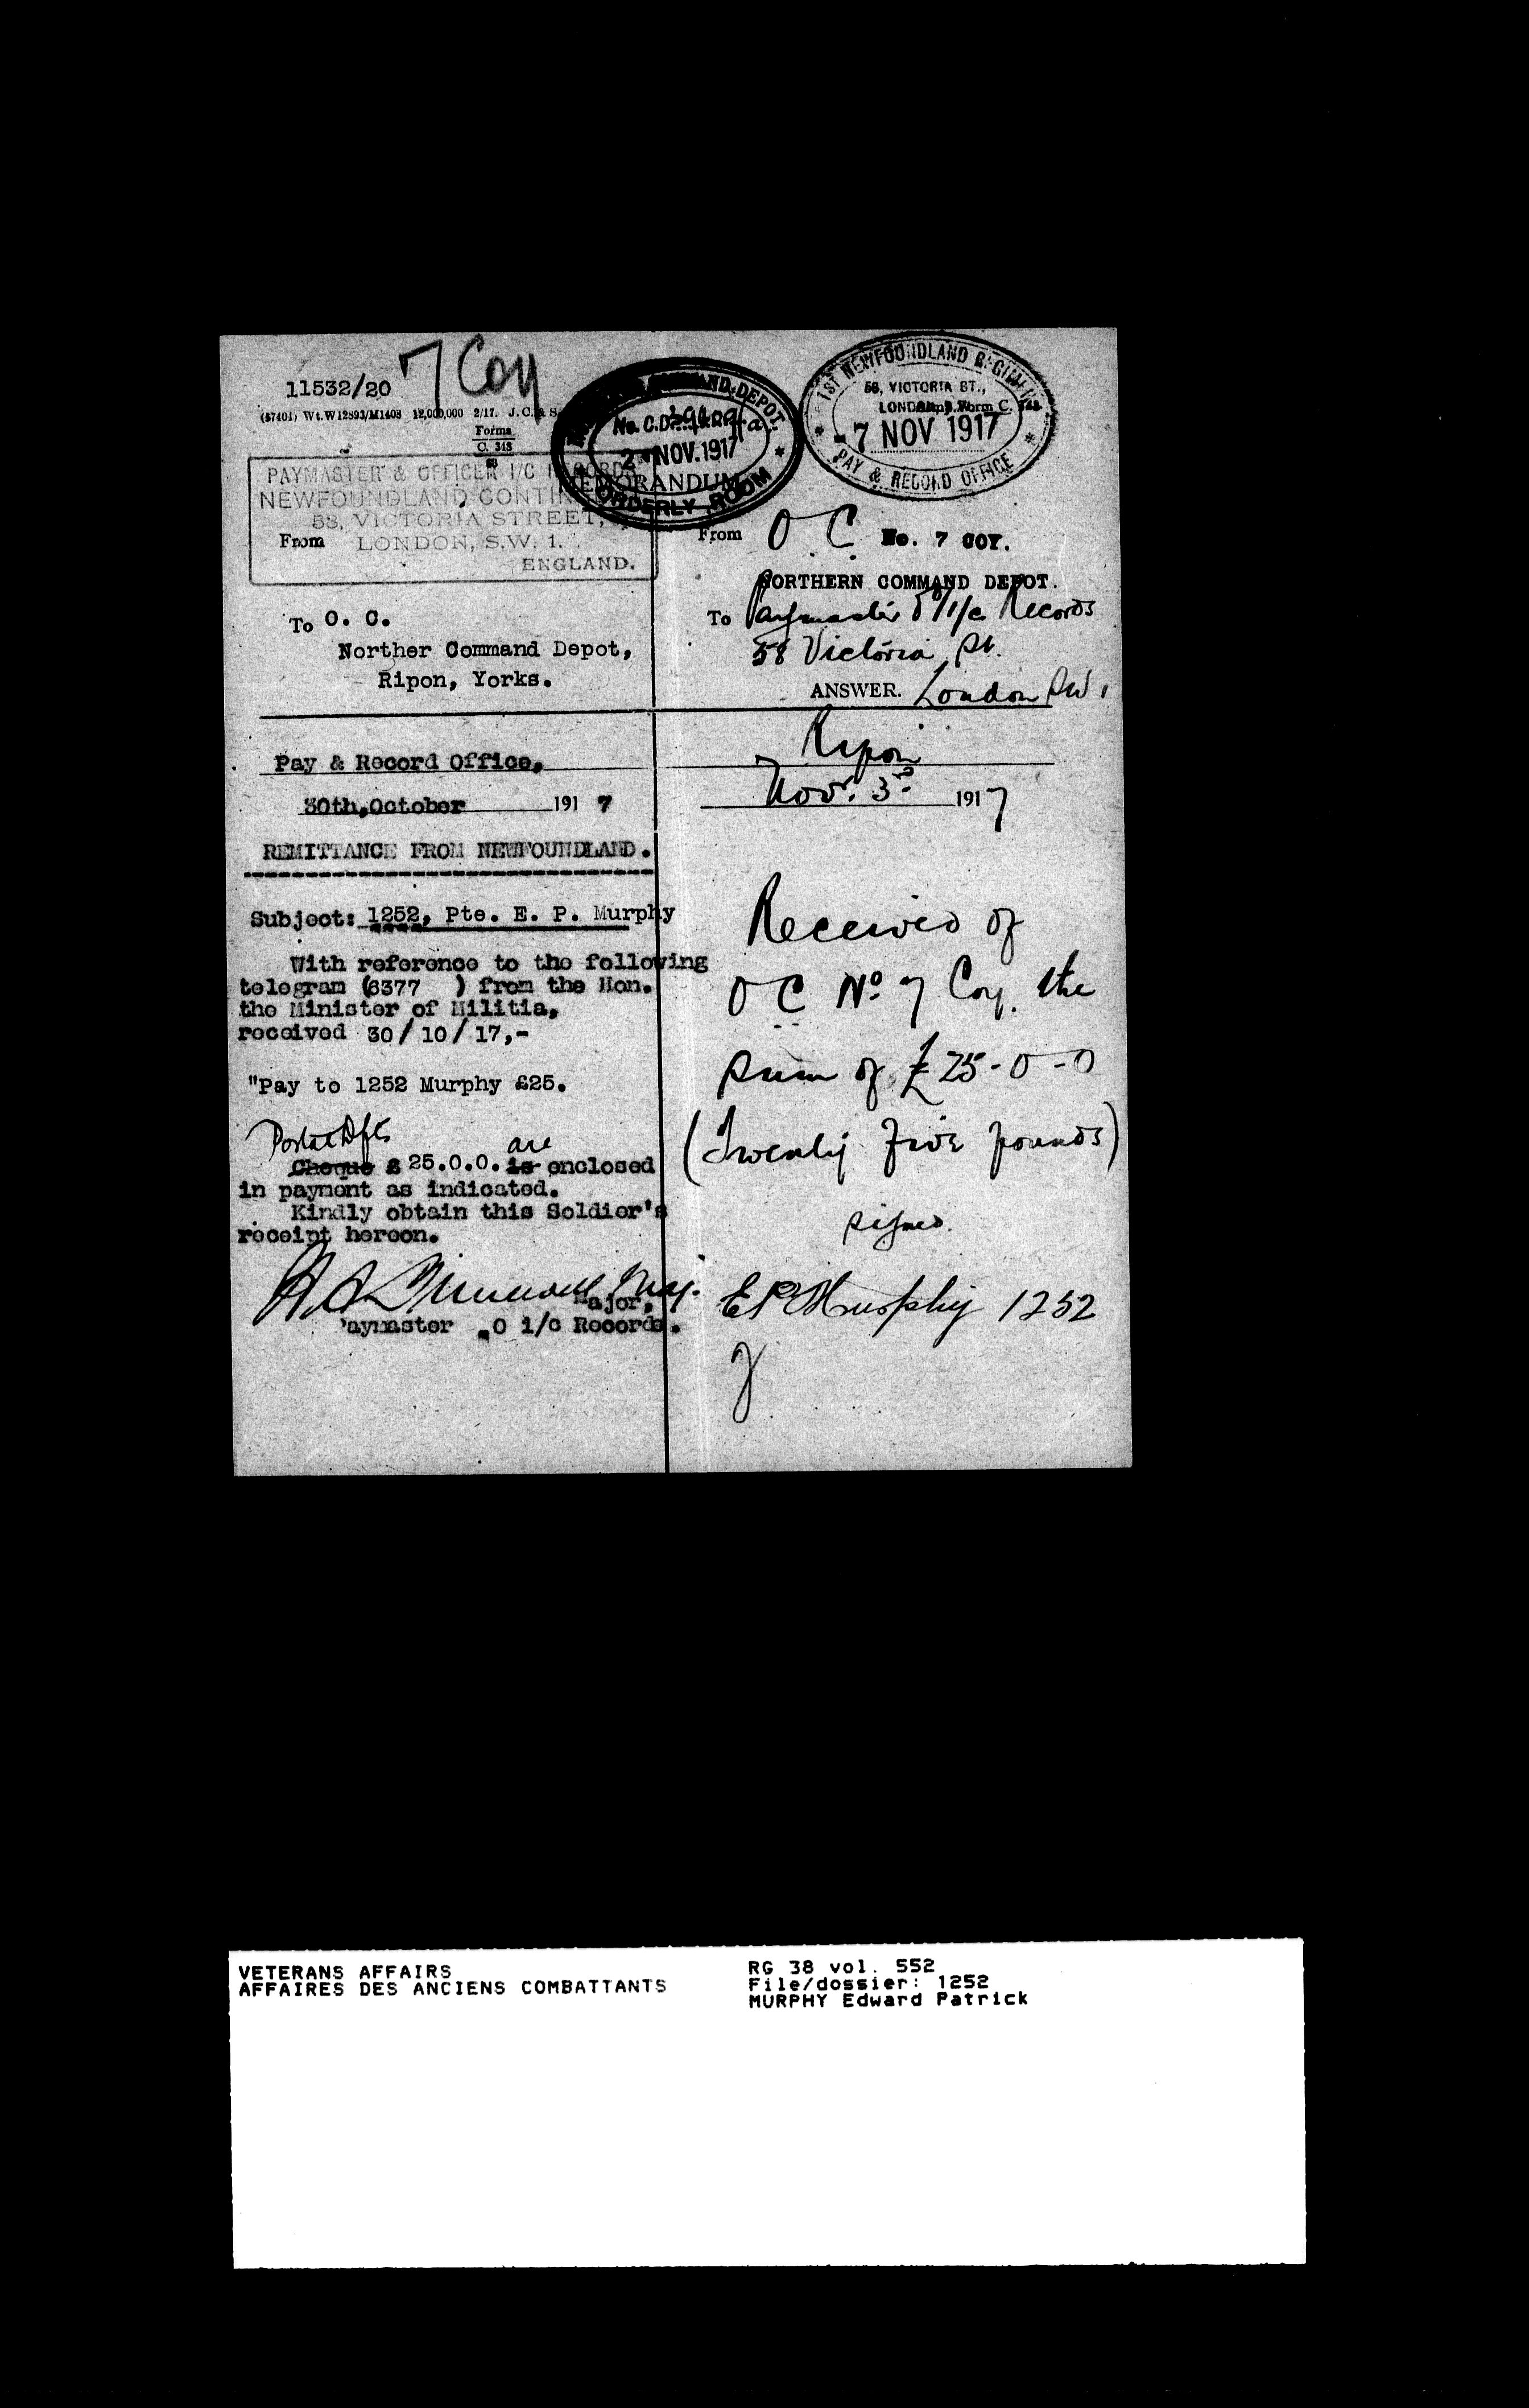 11532/20
7 Coy
(57401) Wt.W12893/M1403 12,000,000 2/17. J.C.& S
Forms
C. 348
PAYMASTER & OFFICER I/C RECORDS
NEWFOUNDLAND CONTIN
58, VICTORIA STREET,
From LONDON, S.W. 1.
ENGLAND.
To O. C.
Norther Command Depot,
Ripon, Yorks.
Pay & Record Office,
30th,October 191 7
REMITTANCE FROM NEWFOUNDLAND.
Subject: 1252, Pte. E. P. Murphy
With reference to the following
telegram (6377 ) from the Hon.
the Minister of Militia,
received 30/10/17,-
"Pay to 1252 Murphy £25.
Postal Dfts are
Cheque £ 25.0.0. is enclosed
in payment as indicated.
Kindly obtain this Soldier's
receipt hereon.
Major,
Paymaster O i/c Records.
COMMAND DEPOT.
No. C.D.
2 NOV.1917
MEMORANDUM
ORDERLY ROOM
1ST NEWFOUNDLAND REGIMENT
58, VICTORIA ST.,
LONDON
Army Form C. 348
-7 NOV 1917
PAY & RECORD OFFICE
From O C No. 7 COY.
NORTHERN COMMAND DEPOT.
To Paymaster & O/i/c Records
58 Victoria St.
ANSWER. London SW1
Ripon
Nov. 3rd 1917
Received of
O C No 7 Coy. the
sum of £25-0-0
(Twenty five pounds)
signed.
E P Murphy 1252
VETERANS AFFAIRS
AFFAIRES DES ANCIENS COMBATTANTS
RG 38 vol. 552
File/dossier: 1252
MURPHY Edward Patrick